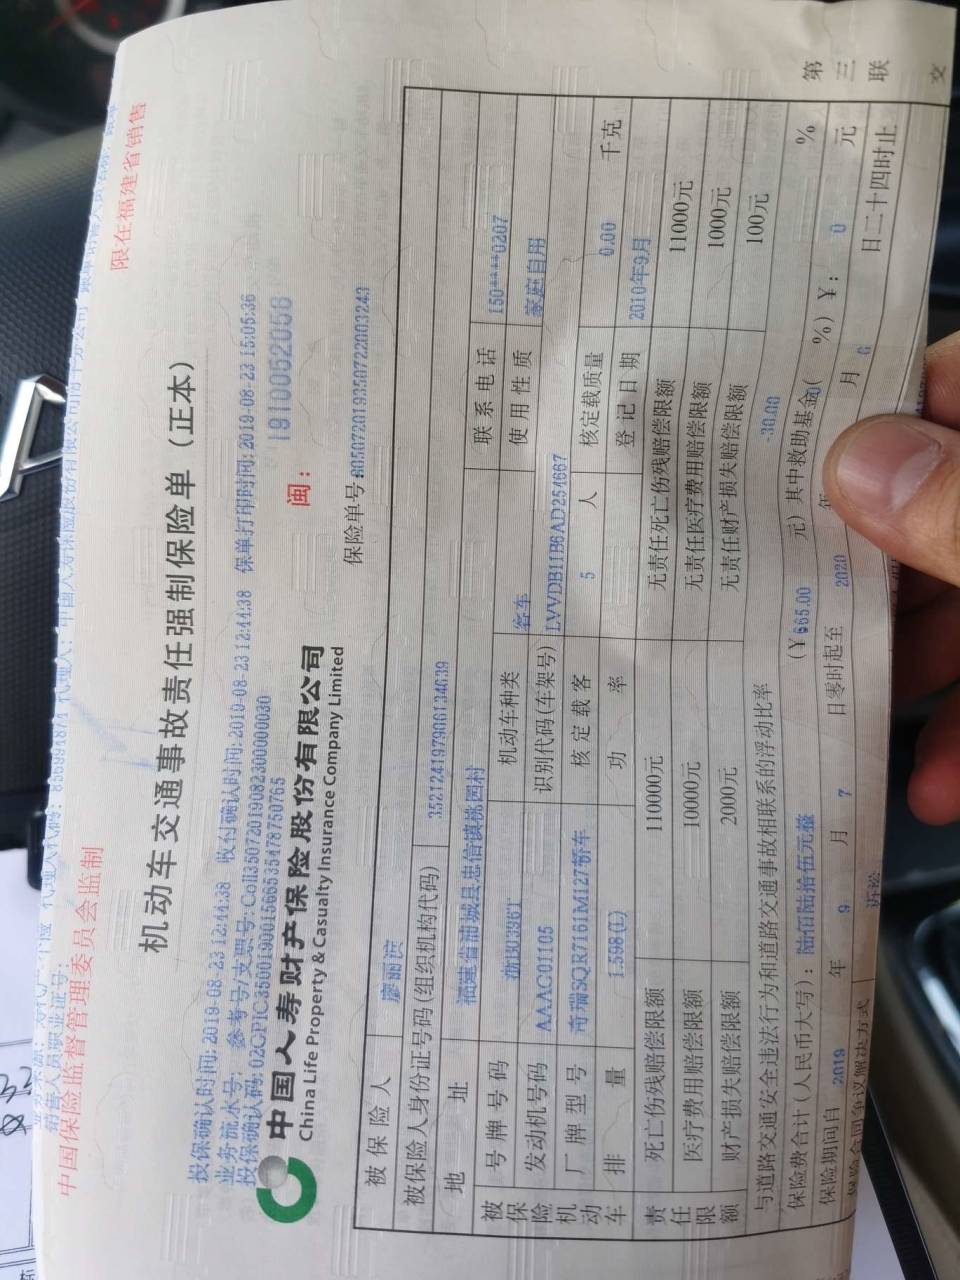 中国保险监督管理委员会监制
限在福建省销售
机动车交通事故责任强制保险单（正本）
投保确认时间: 2019-08-23 12:44:38 收付确认时间: 2019-08-23 12:44:38 保单打印时间: 2019-08-23 15:05:36
业务流水号: 参考号/支票号: Coll3507201908230000000030
投保确认码: 02GPIC350019001566535478750765
中国人寿财产保险股份有限公司
China Life Property & Casualty Insurance Company Limited
闽: 191005205
保险单号: 805072019350722003243
被保险人
被保险人身份证号码(组织机构代码) 352124197906134639
地址 福建省浦城县忠信镇
联系电话 150****0207
被保险机动车
号牌号码
机动车种类 客车
使用性质 家庭自用
发动机号码 AAAC01105
识别代码(车架号) LVVDB11B6AD254667
厂牌型号 奇瑞SQR7161M127轿车
核定载客 5 人
核定载质量 0.00 千克
排量 1.598(L)
功率
登记日期 2010年9月
责任限额
死亡伤残赔偿限额 110000元 无责任死亡伤残赔偿限额 11000元
医疗费用赔偿限额 10000元 无责任医疗费用赔偿限额 1000元
财产损失赔偿限额 2000元 无责任财产损失赔偿限额 100元
与道路交通安全违法行为和道路交通事故相联系的浮动比率 -30.00 %
保险费合计（人民币大写）: 陆佰陆拾伍元整 (￥665.00 元) 其中救助基金( %) ￥: 0 元
保险期间自 2019 年 9 月 7 日零时起至 2020 年 月 6 日二十四时止
保险合同争议解决方式 诉讼
第三联 交